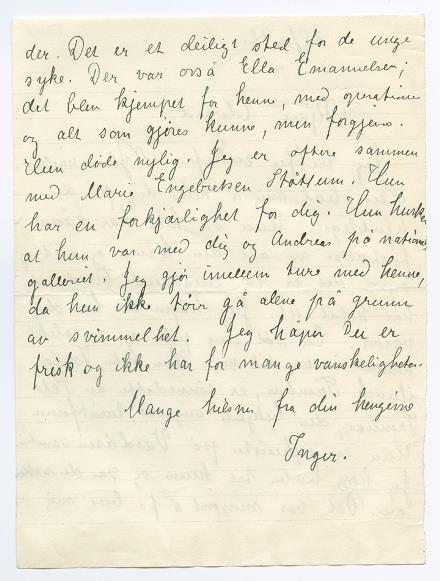 der. Det er et deiligt sted for de unge
syke. Der var også Ella Emanuelsen;
det blev kjempet for henne, med operation
og alt som gjøres kunne, men forgjeves.
Hun døde nylig. Jeg er oftere sammen
med Marie Engebretsen Støtsum. Hun
har en forkjærlighet for dig. Hun husker
at hun var med dig og Andreas på national
galleriet. Jeg gjør imellem ture med henne,
da hun ikke tørr gå alene på grunn
av svimmelhet. Jeg håper Du er
frisk og ikke har for mange vanskeligheter.
Mange hilsner fra din hengivne
Inger.